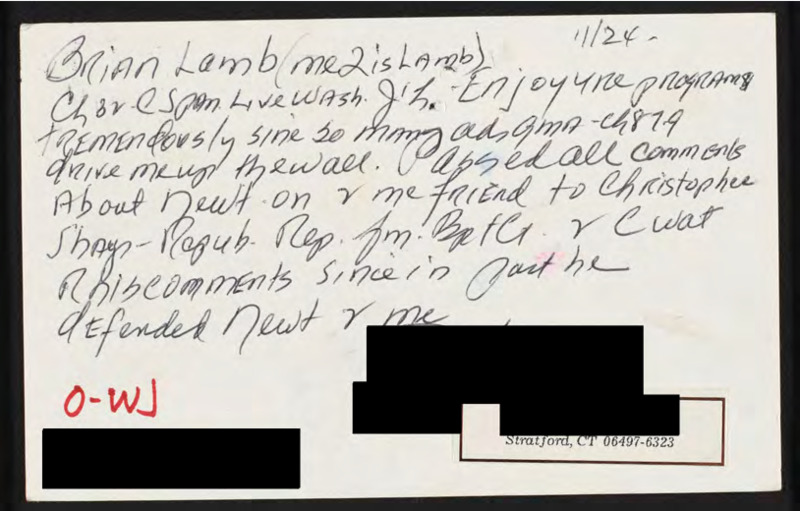 11/24-
Brian Lamb (me2isLamb)
Ch 8r C Span. LiveWash. J'l. Enjoy ure programs
tremendously sine so many ads gma-ch879
drive me up thewall. Passed all comments
About Newt on r me friend to Christopher
Shays- Repub. Rep. fm. Bptct. r C wat
R hiscomments since in past he
defended Newt r me
O-WJ
Stratford, CT 06497-6323